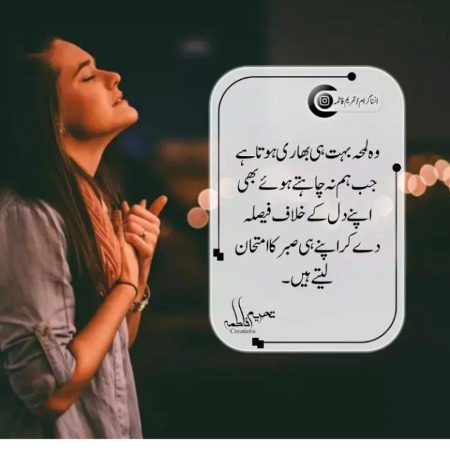 انسٹاگرام/تحریم فاطمہ
وہ لمحہ بہت ہی بھاری ہوتا ہے
جب ہم نہ چاہتے ہوئے بھی
اپنے دل کے خلاف فیصلہ
دے کر اپنے ہی صبر کا امتحان
لیتے ہیں۔
تحریم فاطمہ
Creations